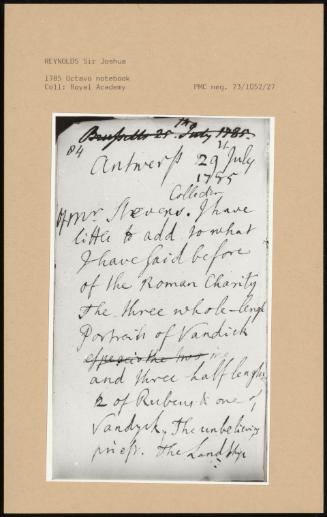 REYNOLDS Sir Joshua
1785 Octavo notebook
Coll: Royal Academy
PMC neg. 73/1052/27
Brussells 25th July 1785.
84
Antwerp 29th July
1785
Collector
Of Mr. Stevens. I have
little to add to what
I have said before
of the Roman Charity
The three whole-length
Portraits of Vandick
and three half lenghs
2 of Rubens & one of
Vandyck, The unbelieving
priest. The Landskip